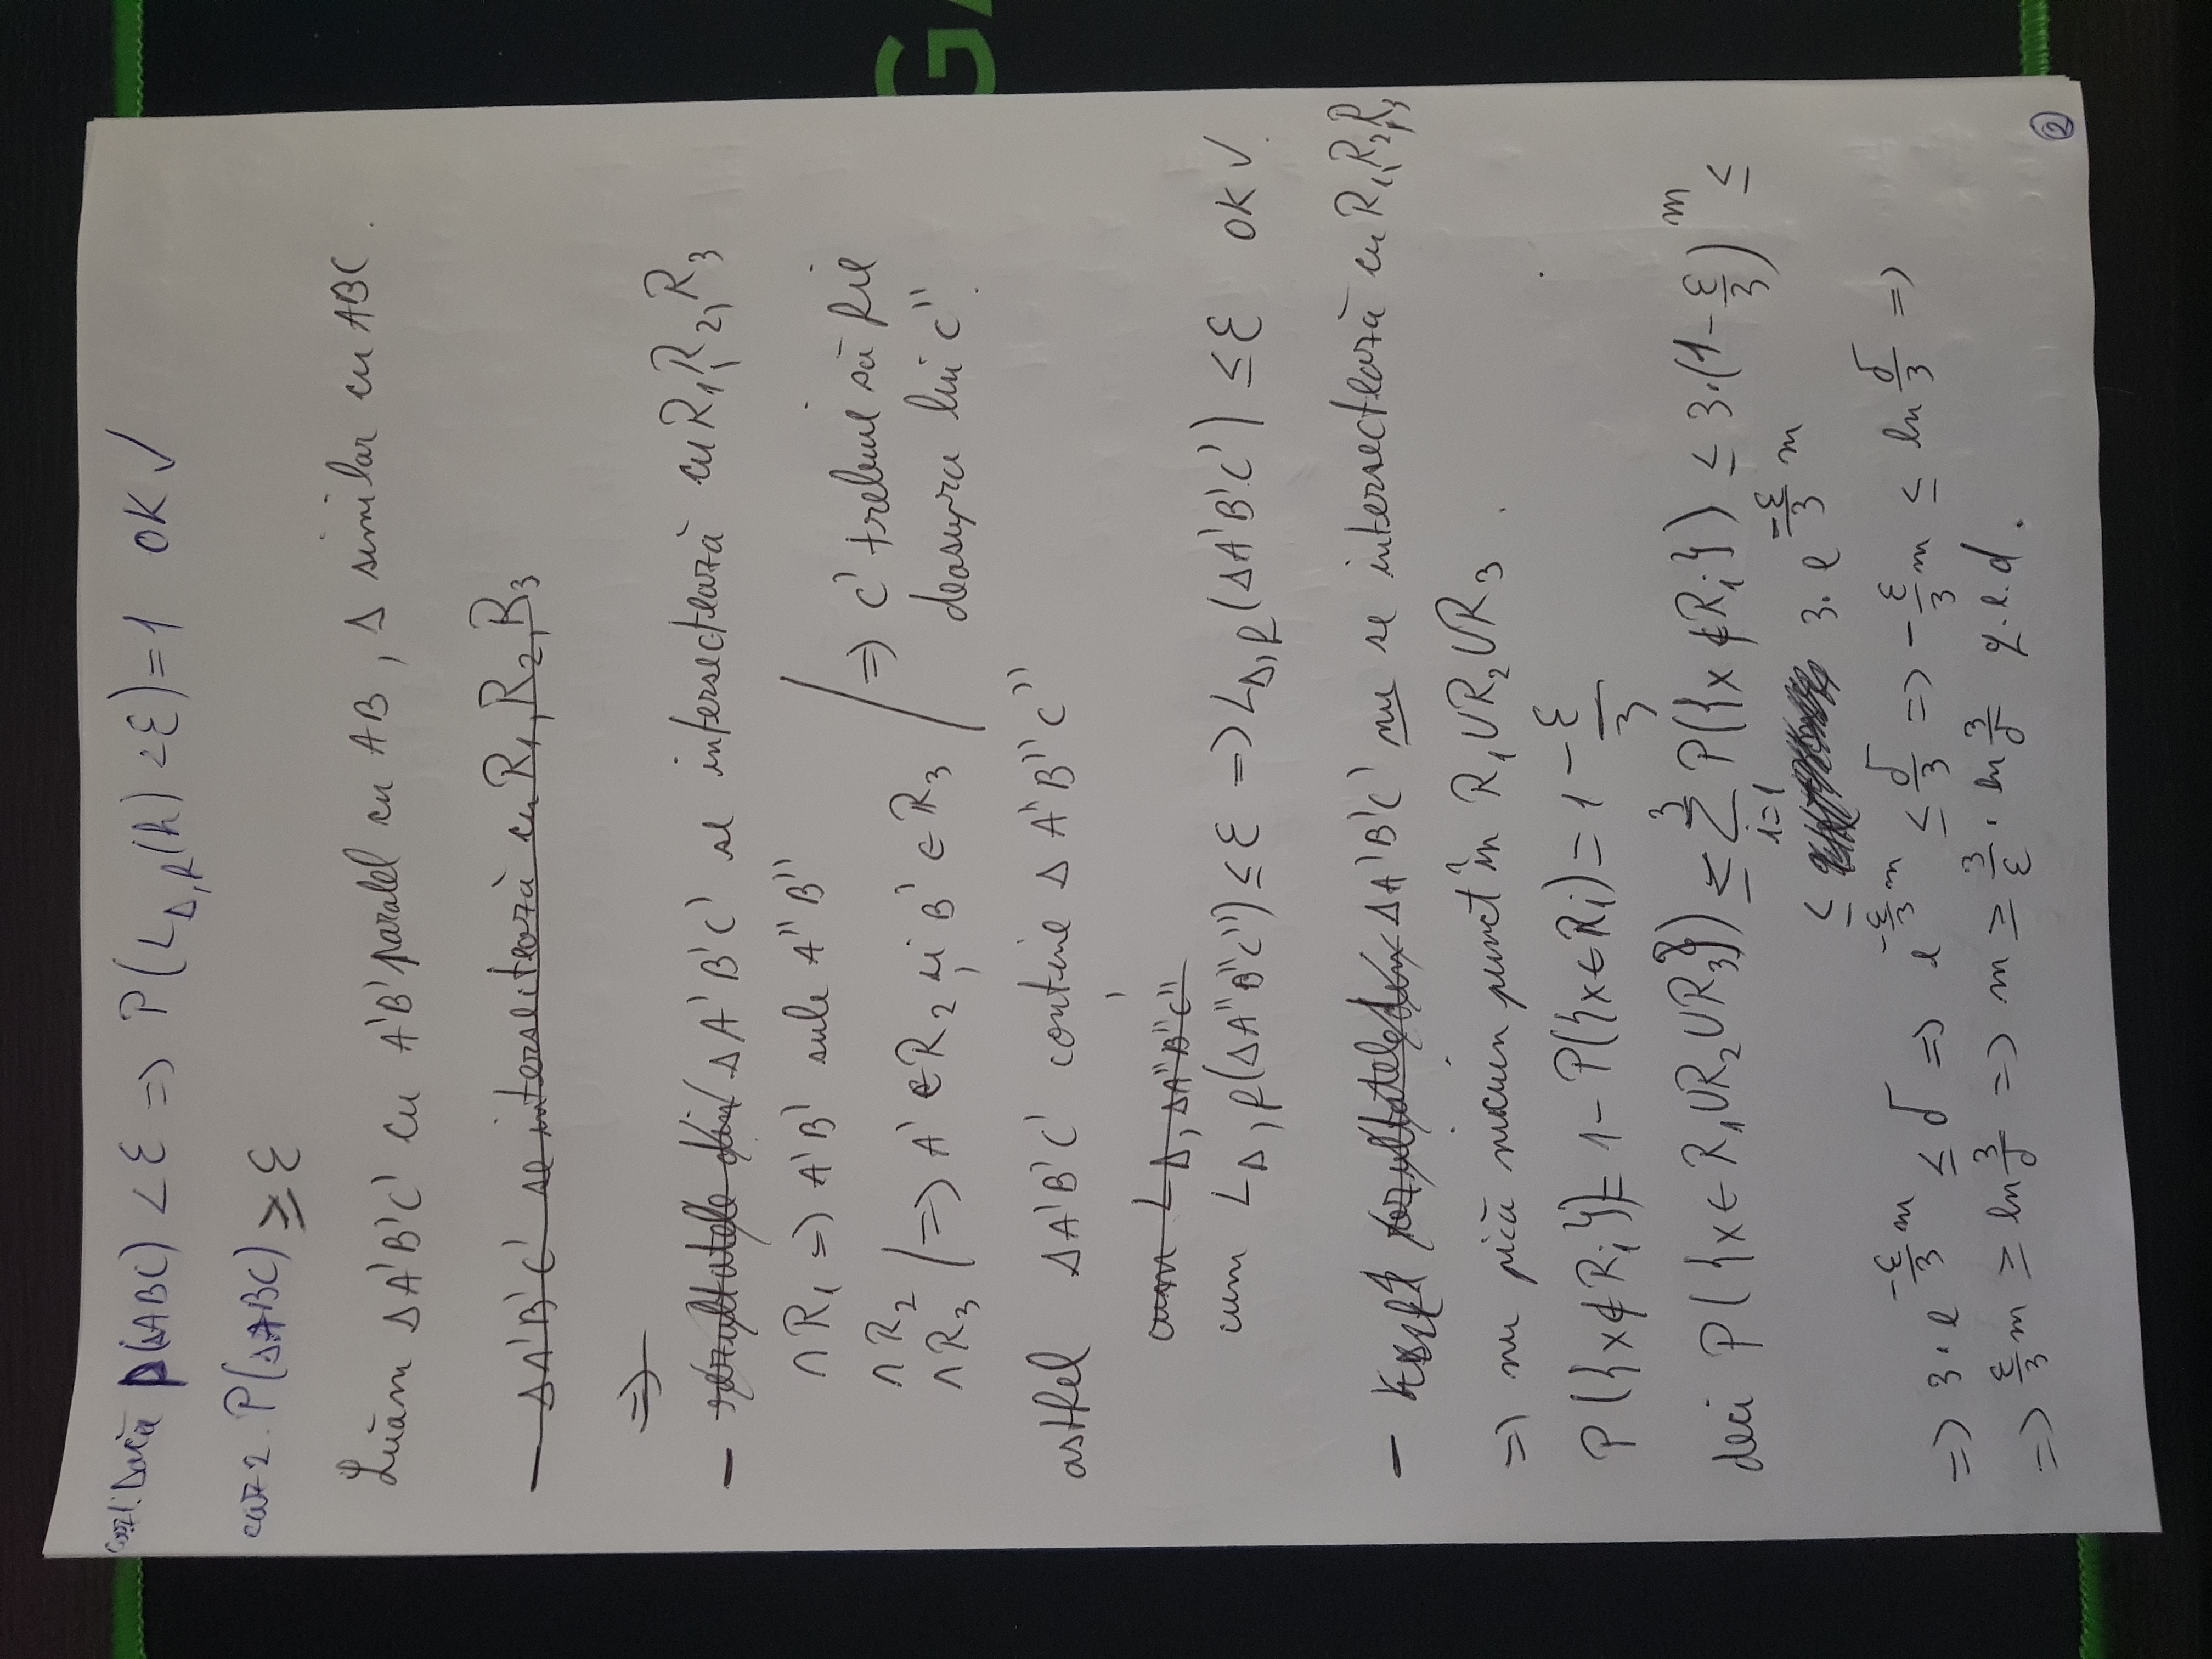 caz 1. Dacă P(ΔABC) < ε => P(L_{D,f}(h) < ε) = 1 OK ✓
caz 2. P(ΔABC) ≥ ε
Luăm ΔA'B'C' cu A'B' paralel cu AB, Δ similar cu ABC.
— ΔA'B'C' se intersectează cu R₁, R₂, R₃
=>
— rezultatele din ΔA'B'C' se intersectează cu R₁, R₂, R₃
∩R₁ => A'B' sub A''B''
∩R₂
∩R₃ / => A' ∈ R₂ și B' ∈ R₃ / => C' trebuie să fie
deasupra lui C''.
astfel ΔA'B'C' conține ΔA''B''C''
cum L_{D, ΔA''B''C''}
cum L_{D,f}(ΔA''B''C'') ≤ ε => L_{D,f}(ΔA'B'C') ≤ ε OK ✓
— rezultatele din ΔA'B'C' nu se intersectează cu R₁, R₂, R₃
=> nu pică niciun punct în R₁∪R₂∪R₃.
P({x∉Rᵢ}) = 1 - P({x∈Rᵢ) = 1 - ε/3
deci P({x∈R₁∪R₂∪R₃}) ≤ Σ_{i=1}^{3} P({x∉Rᵢ}) ≤ 3·(1-ε/3)^m ≤
≤ 3·e^{-ε/3 m}
=> 3·e^{-ε/3 m} ≤ δ => e^{-ε/3 m} ≤ δ/3 => -ε/3 m ≤ ln δ/3 =>
=> ε/3 m ≥ ln 3/δ => m ≥ 3/ε · ln 3/δ q.e.d.
2
GA